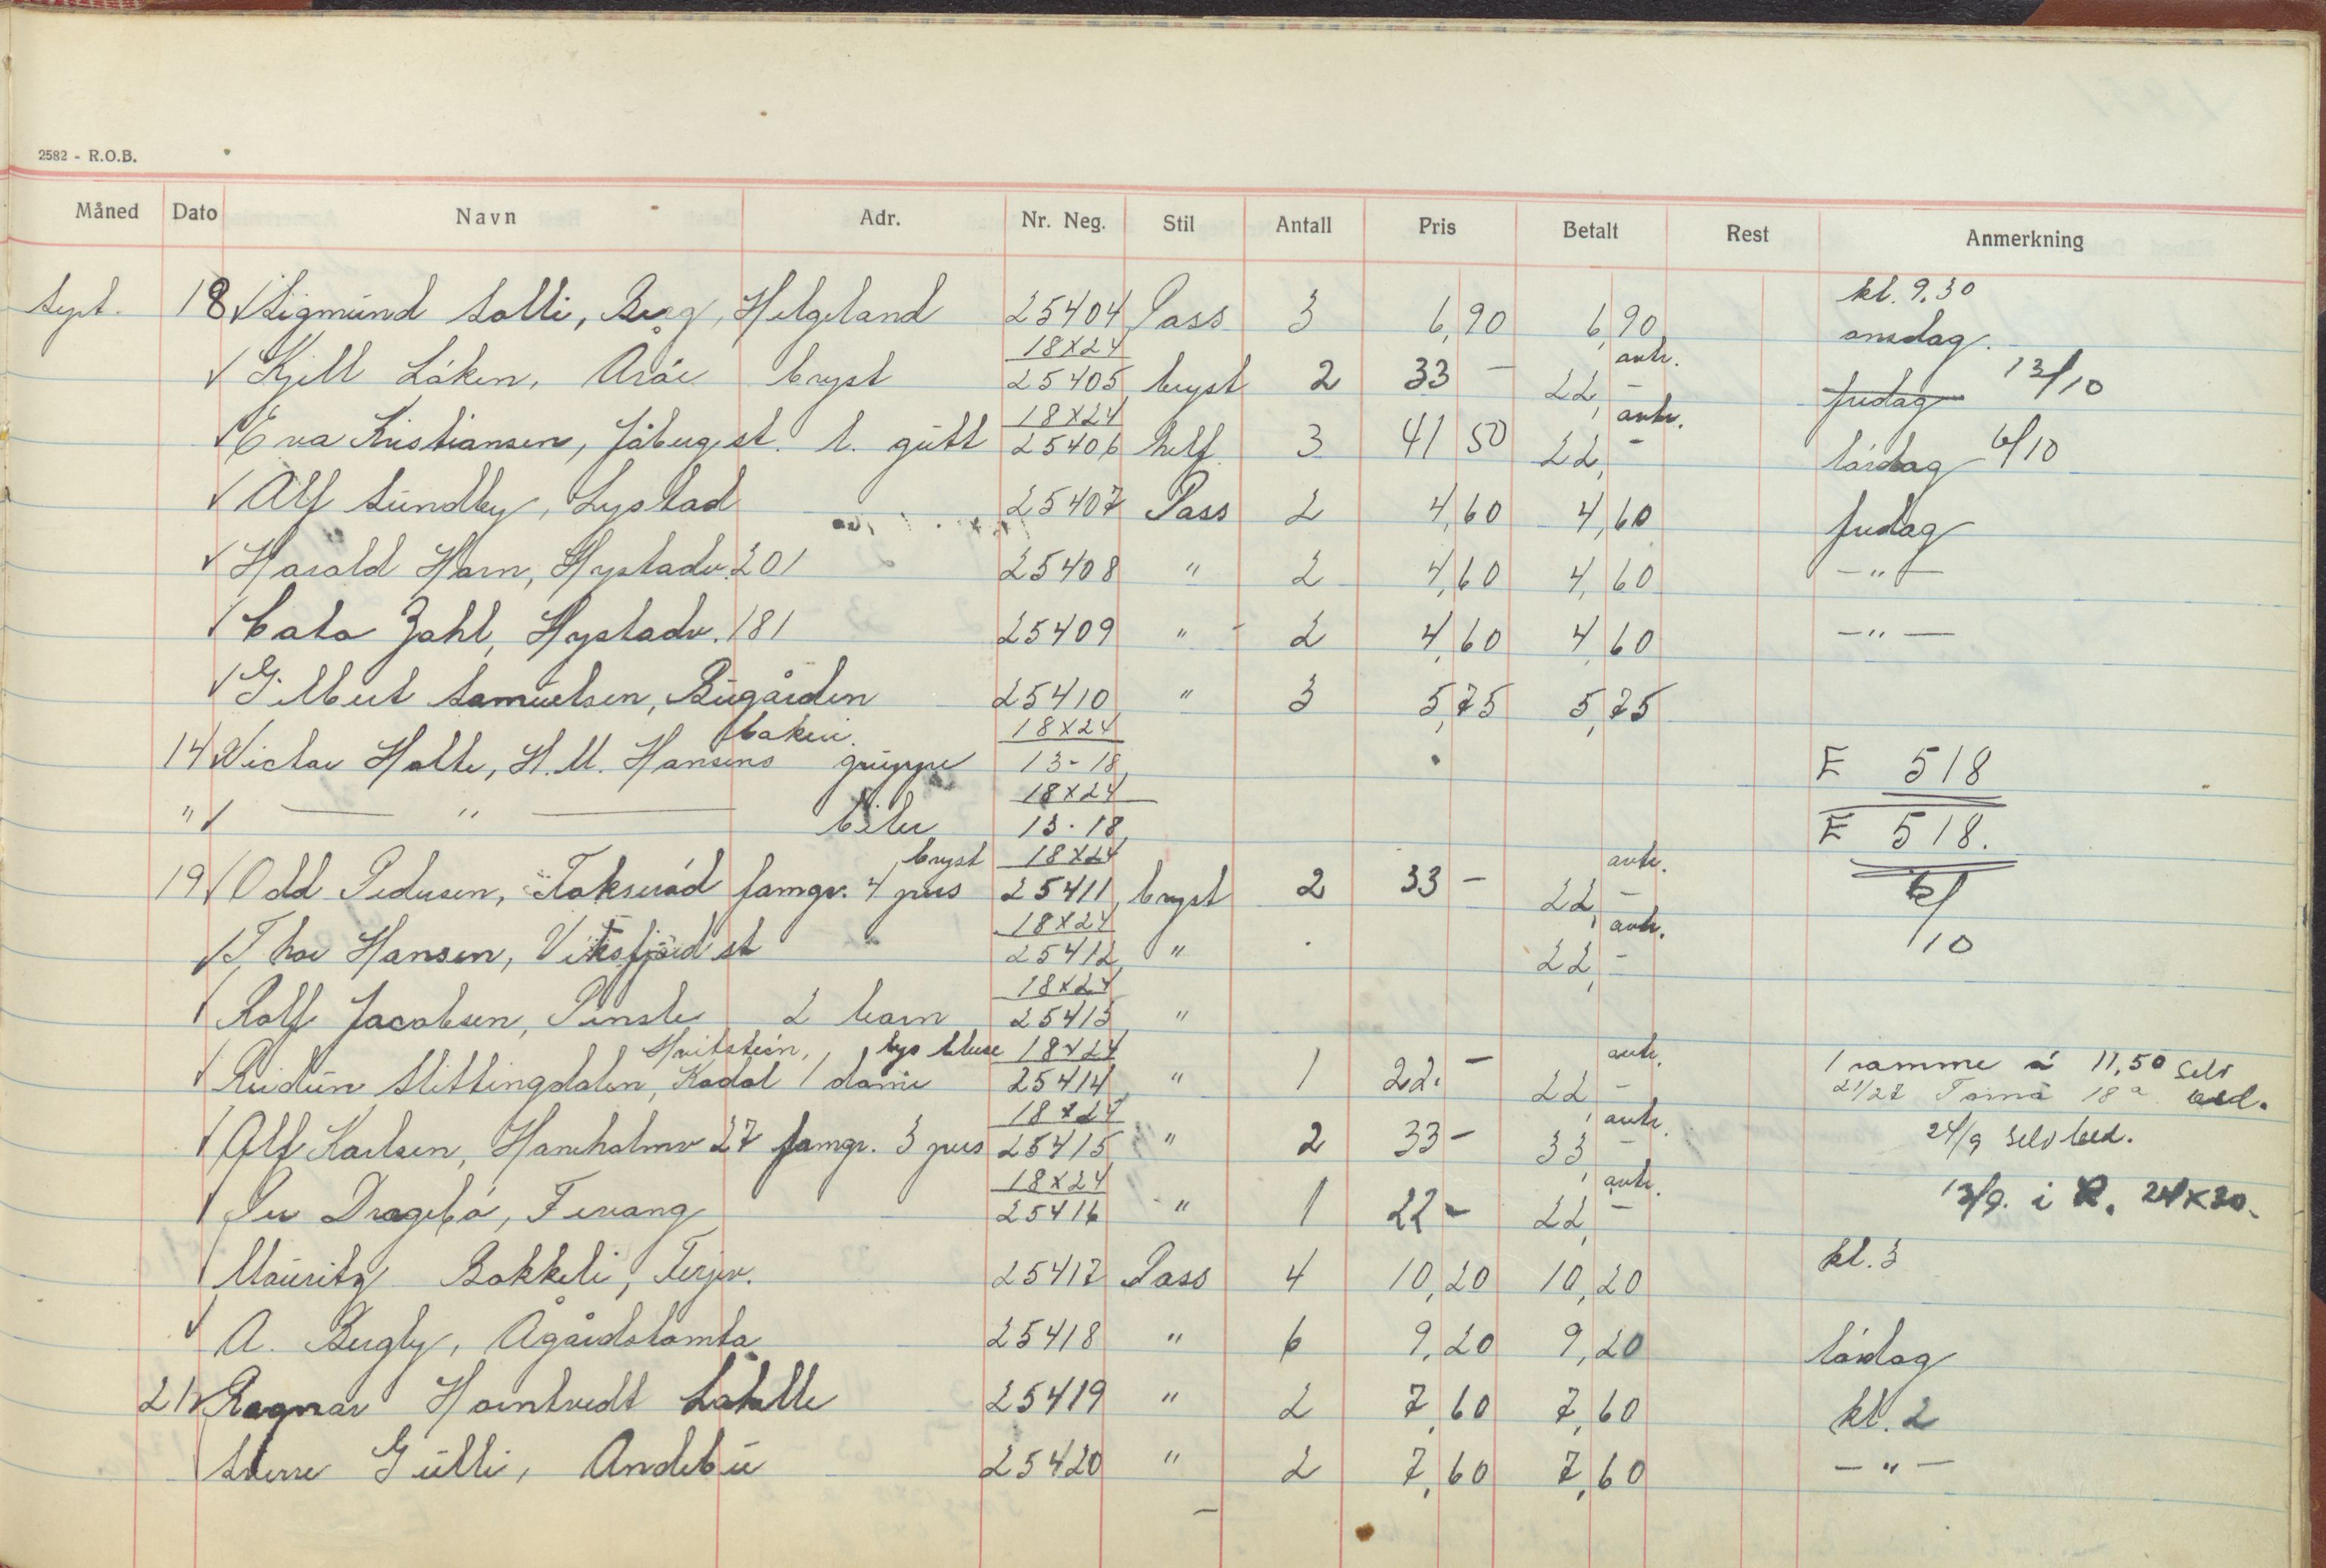 2582 - R.O.B.
Måned Dato Navn Adr. Nr. Neg. Stil Antall Pris Betalt Rest Anmerkning
kl. 9.30
Sept. 18 √ Sigmund Solli, Berg, Helgeland 25404 Pass 3 6,90 6,90 onsdag.
18x24 antr.
√ Kjell Löken, Aröe bryst 25405 bryst 2 33 - 22,- fredag 13/10
18x24 antr.
√ Eva Kristiansen, Jåbergst. l. gutt 25406 helf. 3 41 50 22,- lördag 6/10
√ Alf Sundby, Lystad 25407 Pass 2 4,60 4,60 fredag
√ Harald Horn, Hystadv. 201 25408 " 2 4,60 4,60 - " -
√ Cato Zahl, Hystadv. 181 25409 " 2 4,60 4,60 - " -
√ Gilbert Samuelsen, Bugården 25410 " 3 5,75 5,75
bakeri. 18x24
14 √ Victor Holte, H.M. Hansens gruppe 13-18 E 518
18x24
" √ — " — biler 13-18 E 518.
bryst 18x24 antr.
19 √ Odd Pedersen, Fokseröd famgr. 4 pers 25411 bryst 2 33 - 22,- 6/10
18x24 antr.
√ Thor Hansen, Viksfjord st 25412 " 22,-
18x24
√ Rolf Jacobsen, Pinsle 2 barn 25413 "
Hvitstein, lys bluse 18x24 antr. 1 ramme á 11,50 selv
√ Reidun Slettingdalen, Kodal 1 dame 25414 " 1 22.- 22,- 21/27 18 bed.
18x24 antr.
√ Alf Karlsen, Hareholmv 27 famgr. 3 pers 25415 " 2 33 - 33,- 24/9 selv bed.
18x24 antr.
√ Per Dragebö, Tenvang 25416 " 1 22 - 22,- 13/9. i R. 24x30.
√ Mauritz Bakkeli, Terjev. 25417 Pass 4 10,20 10,20 kl. 3
√ A. Bergby, Ågårdstomta 25418 " 6 9,20 9,20 lördag
21 √ Ragnar Horntvedt 25419 " 2 7,60 7,60 kl. 2
Sverre Gulli, Andebu 25420 " 2 7,60 7,60 - " -